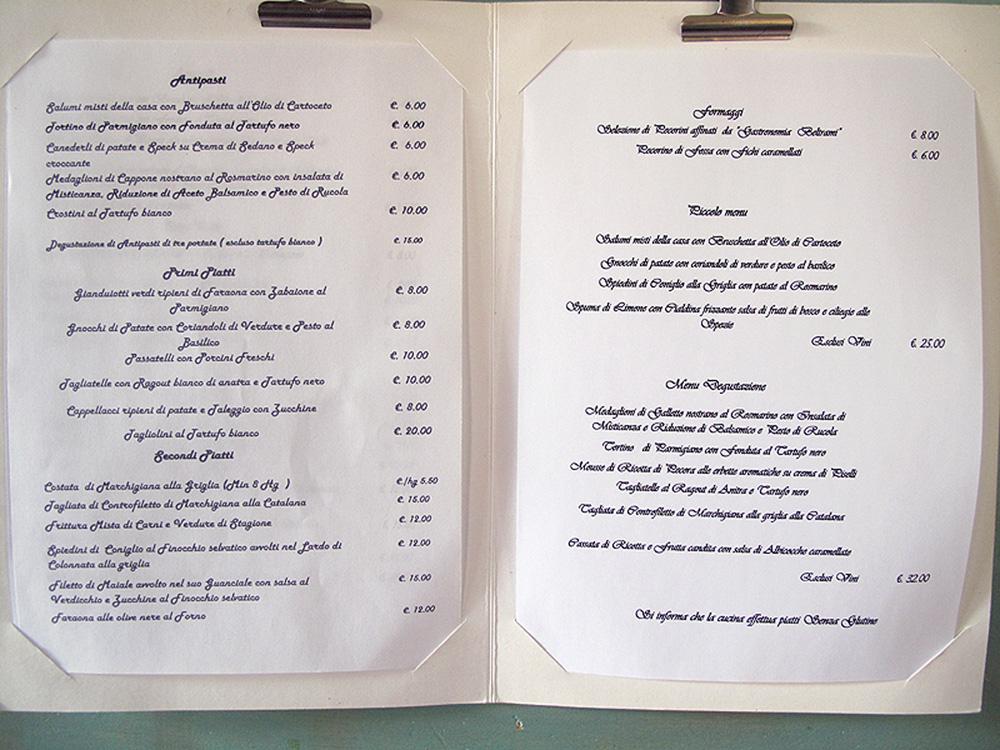 Antipasti
Salumi misti della casa con Bruschetta all'Olio di Cartoceto €. 6.00
Tortino di Parmigiano con Fonduta al Tartufo nero €. 6.00
Canederli di patate e Speck su Crema di Sedano e Speck €. 6.00
croccante
Medaglioni di Cappone nostrano al Rosmarino con insalata di €. 6.00
Misticanza, Riduzione di Aceto Balsamico e Pesto di Rucola
Crostini al Tartufo bianco €. 10.00
Degustazione di Antipasti di tre portate ( escluso tartufo bianco ) €. 15.00
Primi Piatti
Gianduiotti verdi ripieni di Faraona con Zabaione al €. 8.00
Parmigiano
Gnocchi di Patate con Coriandoli di Verdure e Pesto al €. 8.00
Basilico
Passatelli con Porcini Freschi €. 10.00
Tagliatelle con Ragout bianco di anatra e Tartufo nero €. 10.00
Cappellacci ripieni di patate e Taleggio con Zucchine €. 8.00
Tagliolini al Tartufo bianco €. 20.00
Secondi Piatti
Costata di Marchigiana alla Griglia (Min 8 Hg ) €/hg 5.50
Tagliata di Controfiletto di Marchigiana alla Catalana €. 15.00
Frittura Mista di Carni e Verdure di Stagione €. 12.00
Spiedini di Coniglio al Finocchio selvatico avvolti nel Lardo di €. 12.00
Colonnata alla griglia
Filetto di Maiale avvolto nel suo Guanciale con salsa al €. 15.00
Verdicchio e Zucchine al Finocchio selvatico
Faraona alle olive nere al Forno €. 12.00
Formaggi
Selezione di Pecorini affinati da "Gastronomia Beltrami" €. 8.00
Pecorino di Fossa con Fichi caramellati €. 6.00
Piccolo menu
Salumi misti della casa con Bruschetta all'Olio di Cartoceto
Gnocchi di patate con coriandoli di verdure e pesto al basilico
Spiedini di Coniglio alla Griglia con patate al Rosmarino
Spuma di Limone con Cialdina frizzante salsa di frutti di bosco e ciliegie alle
Spezie
Esclusi Vini €. 25.00
Menu Degustazione
Medaglioni di Galletto nostrano al Rosmarino con Insalata di
Misticanza e Riduzione di Balsamico e Pesto di Rucola
Tortino di Parmigiano con Fonduta al Tartufo nero
Mousse di Ricotta di Pecora alle erbette aromatiche su crema di Piselli
Tagliatelle al Ragout di Anitra e Tartufo nero
Tagliata di Controfiletto di Marchigiana alla griglia alla Catalana
Cassata di Ricotta e Frutta candita con salsa di Albicocche caramellate
Esclusi Vini €. 32.00
Si informa che la cucina effettua piatti Senza Glutine